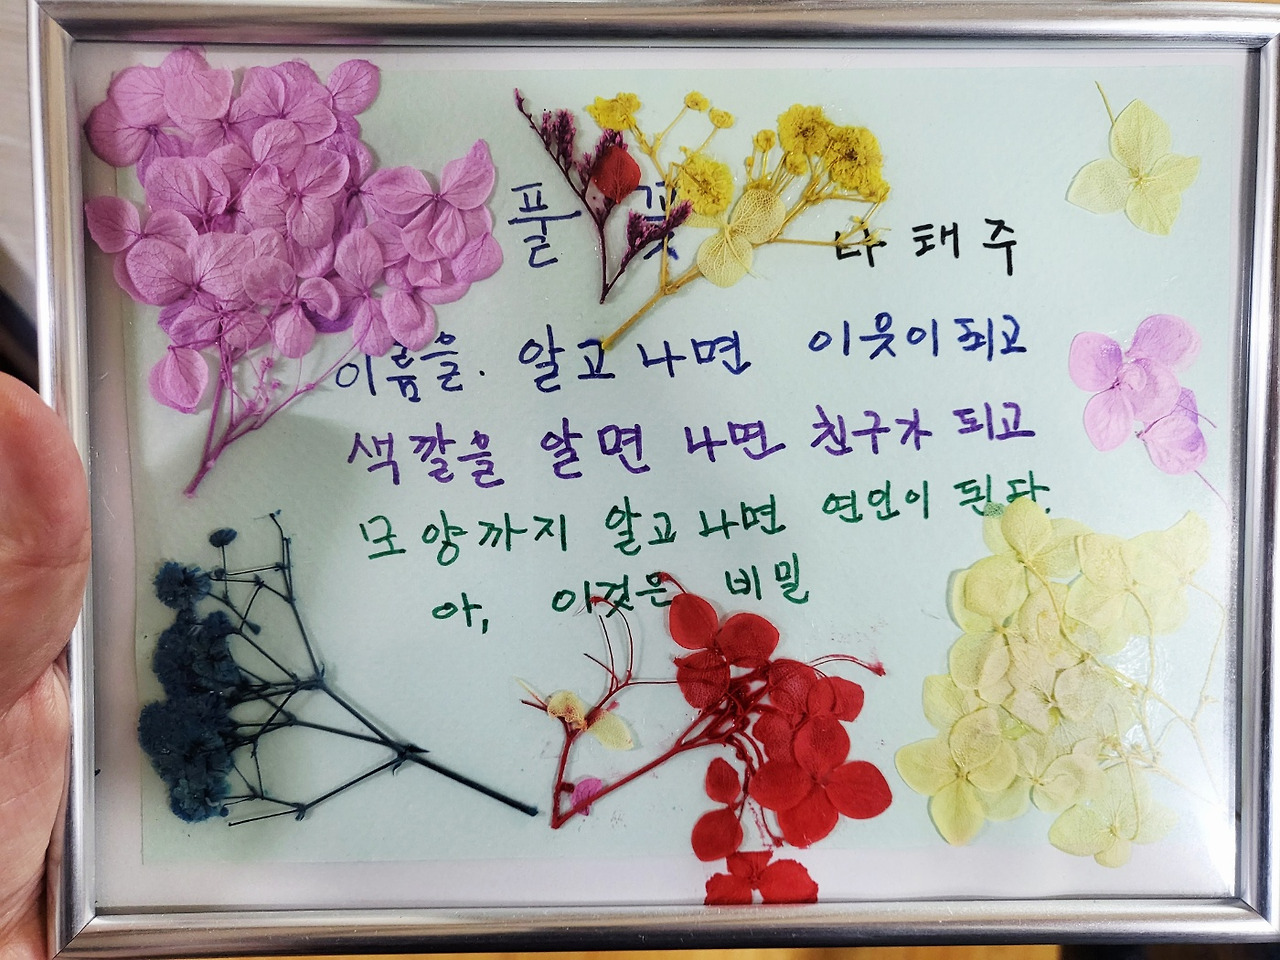 풀꽃 나태주
이름을. 알고 나면 이웃이 되고
색깔을 알면 나면 친구가 되고
모양까지 알고 나면 연인이 된다.
아, 이것은 비밀